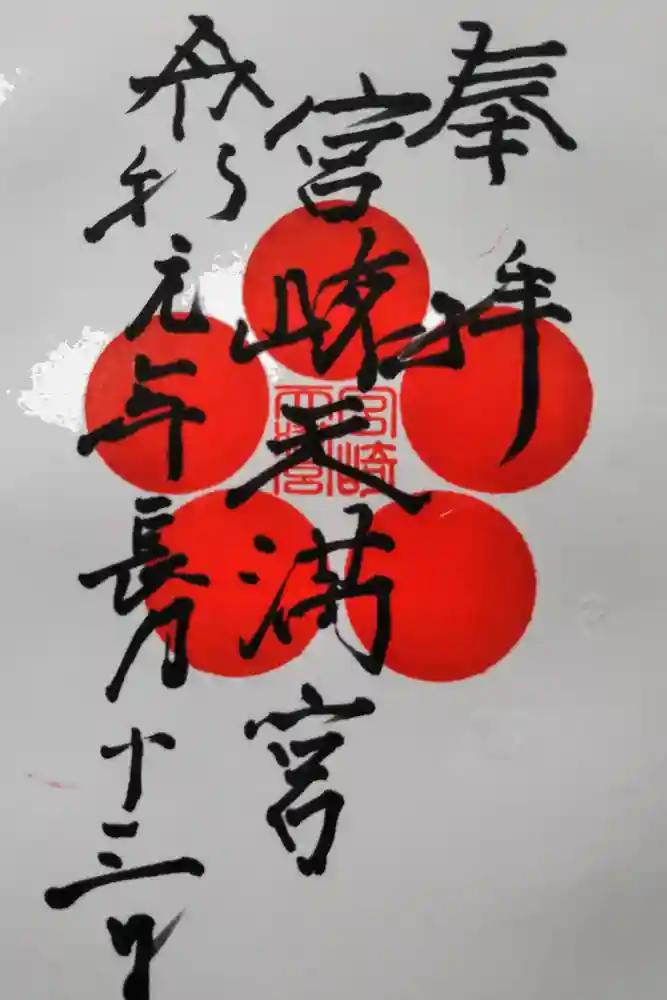 奉拝
宮崎天満宮
宮崎
天満宮
令和元年長月十三日